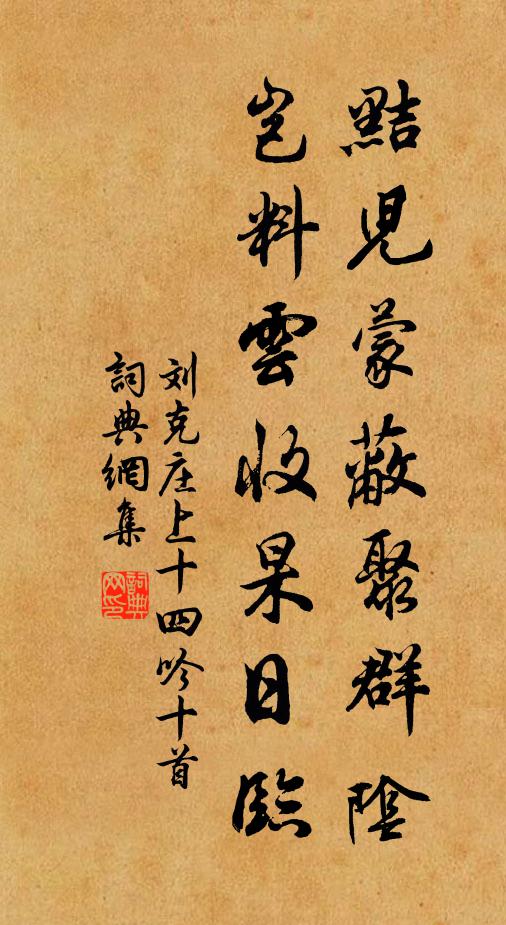 黠児蒙蔽聚群陰
岂料雲收杲日臨
刘克庄上十四吟十首
詞典網集
詞典网印